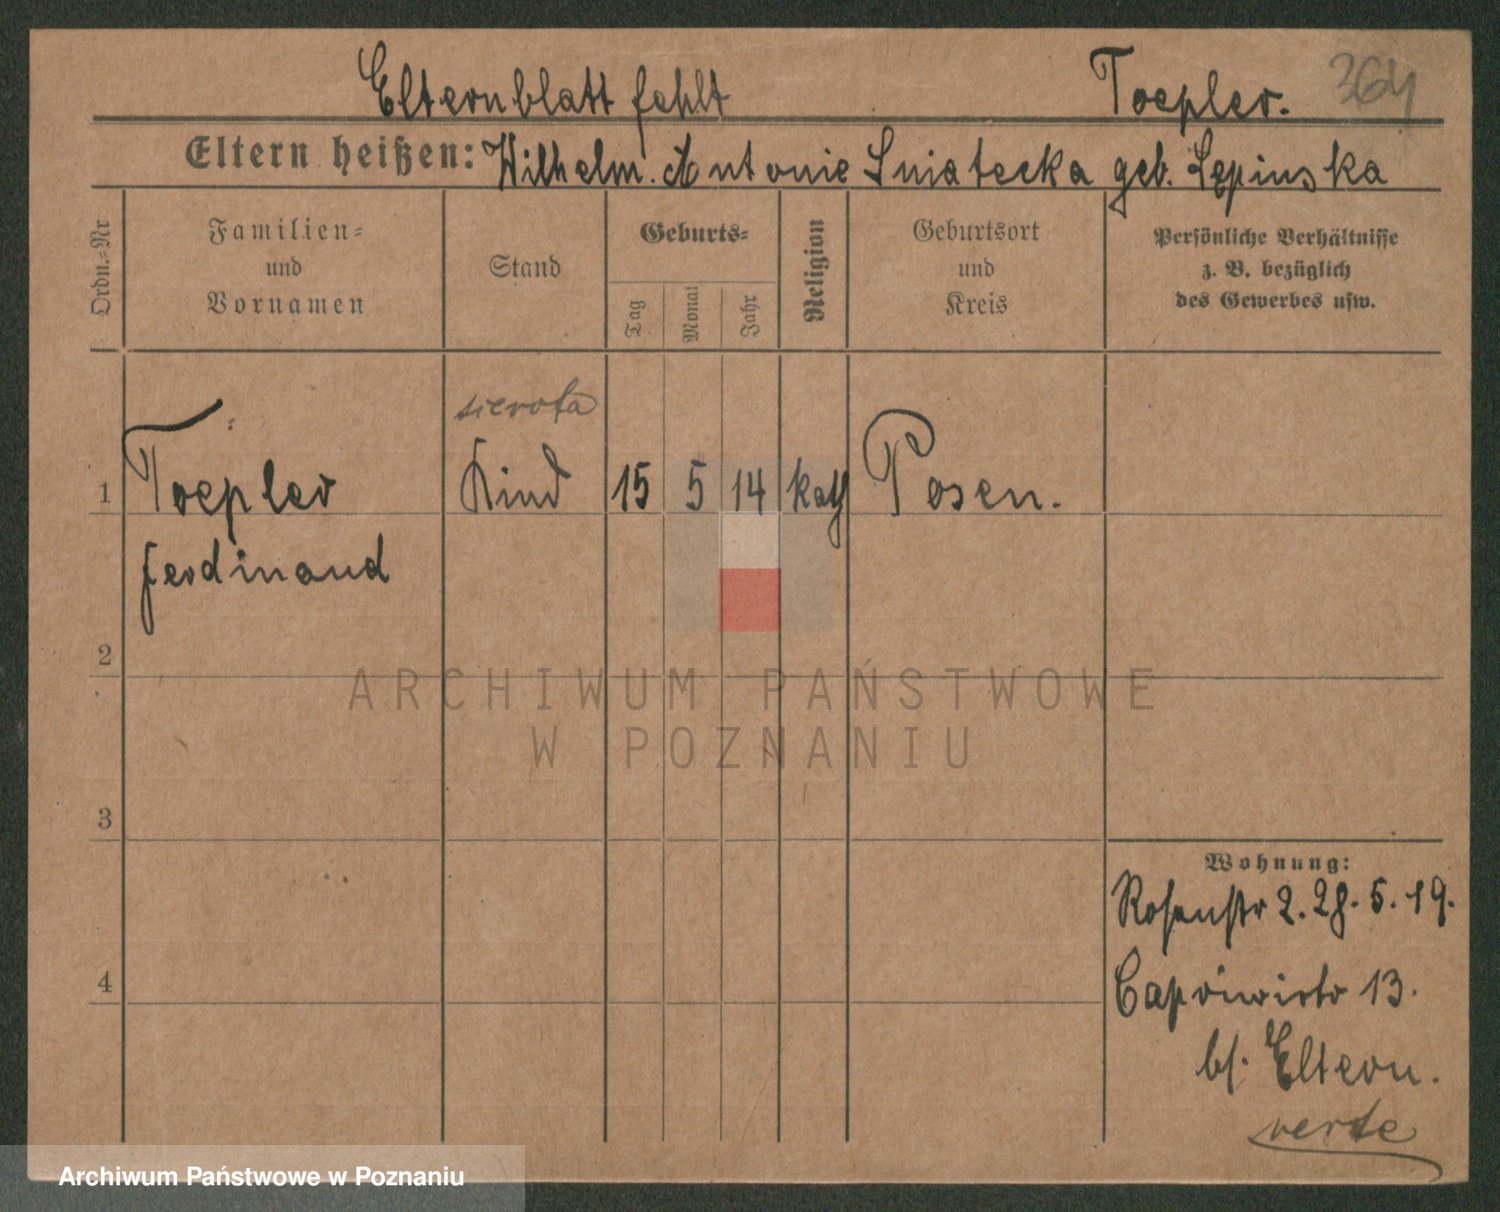 Elternblatt fehlt Toepler. 364
Eltern heißen: Wilhelm. Antonie Sniatecka geb. Lępinska
Ordn.-Nr
Familien-
und
Vornamen
Stand
Geburts-
Tag
Monat
Jahr
Religion
Geburtsort
und
Kreis
Persönliche Verhältnisse
z. B. bezüglich
des Gewerbes usw.
sierota
1 Toepler Kind 15 5 14 kath Posen.
Ferdinand
2
ARCHIWUM PAŃSTWOWE
W POZNANIU
3
Wohnung:
Rosenstr 2. 28. 5. 19.
4
13.
bs. Eltern.
verte
Archiwum Państwowe w Poznaniu